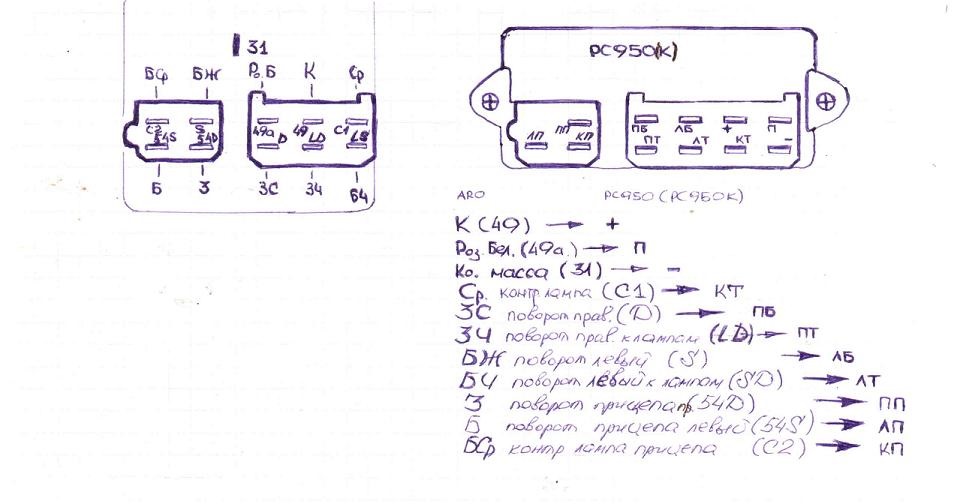 31
БФ БЖ Роз.Б К Ср
C2 54S S 54D 49a D 49 LD C1 LS
Б З ЗС ЗЧ БЧ
РС950(К)
ЛП ПП КП ПБ ПТ ЛБ ЛТ + КТ П -
ARO РС950 (РС950К)
К (49) → +
Роз. Бел. (49a.) → П
Ко. масса (31) → -
Ср. контр лампа (C1) → КТ
ЗС поворот прав. (D) → ПБ
ЗЧ поворот прав. к лампам (LD) → ПТ
БЖ поворот левый (S) → ЛБ
БЧ поворот левый к лампам (SD) → ЛТ
З поворот прицепа пр. (54D) → ПП
Б поворот прицепа левый (54S) → ЛП
БСр контр лампа прицепа (C2) → КП